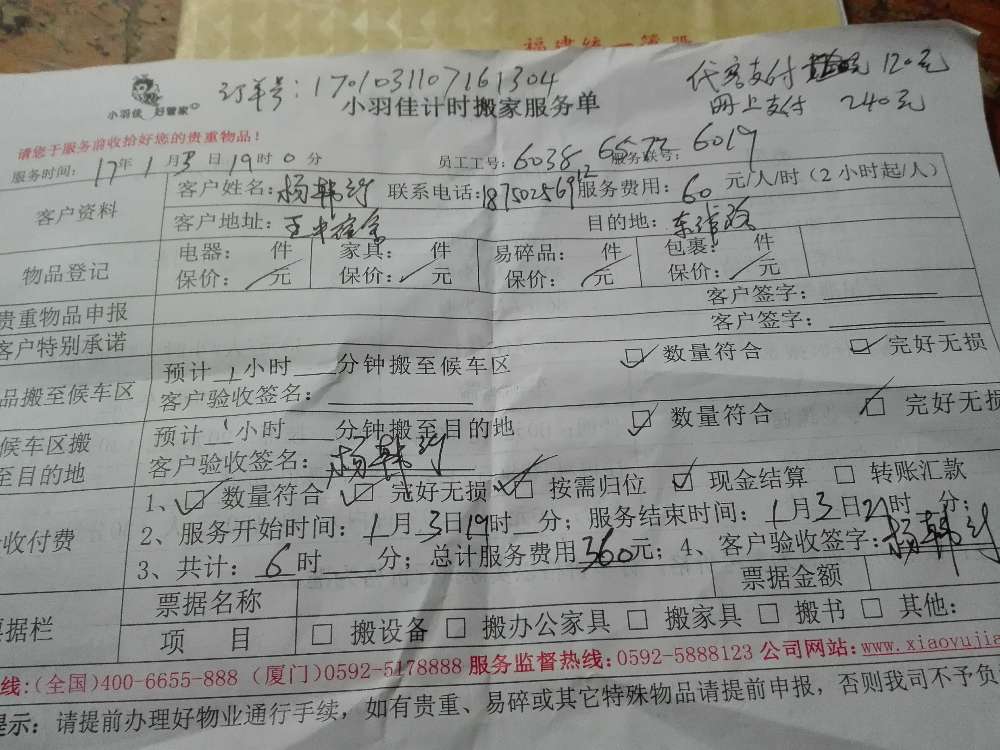 福建统一
订单号：1701031107161304
代客支付 120元
网上支付 240元
小羽佳 好管家
小羽佳计时搬家服务单
请您于服务前收拾好您的贵重物品！
服务时间：17年1月3日19时0分 员工工号：6038 6577 6019 服务联号：
客户资料 客户姓名：杨韩 联系电话：18750256912 服务费用：60元/人/时（2小时起/人）
客户地址： 目的地：
物品登记 电器： 件 家具： 件 易碎品： 件 包裹： 件
保价： 元 保价： 元 保价： 元 保价： 元
贵重物品申报 客户签字：
客户特别承诺 客户签字：
品搬至候车区 预计1小时 分钟搬至候车区 ☑数量符合 ☑完好无损
客户验收签名：
候车区搬至目的地 预计1小时 分钟搬至目的地 ☑数量符合 ☑完好无损
客户验收签名：杨韩
收付费 1、☑数量符合 ☑完好无损 ☑按需归位 ☑现金结算 □转账汇款
2、服务开始时间：1月3日19时 分；服务结束时间：1月3日21时 分；
3、共计：6时 分；总计服务费用360元；4、客户验收签字：杨韩
票据栏 票据名称 票据金额
项 目 □搬设备 □搬办公家具 □搬家具 □搬书 □其他：
线：(全国)400-6655-888 (厦门)0592-5178888 服务监督热线：0592-5888123 公司网站：www.xiaoyujia
提示：请提前办理好物业通行手续，如有贵重、易碎或其它特殊物品请提前申报，否则我司不予负